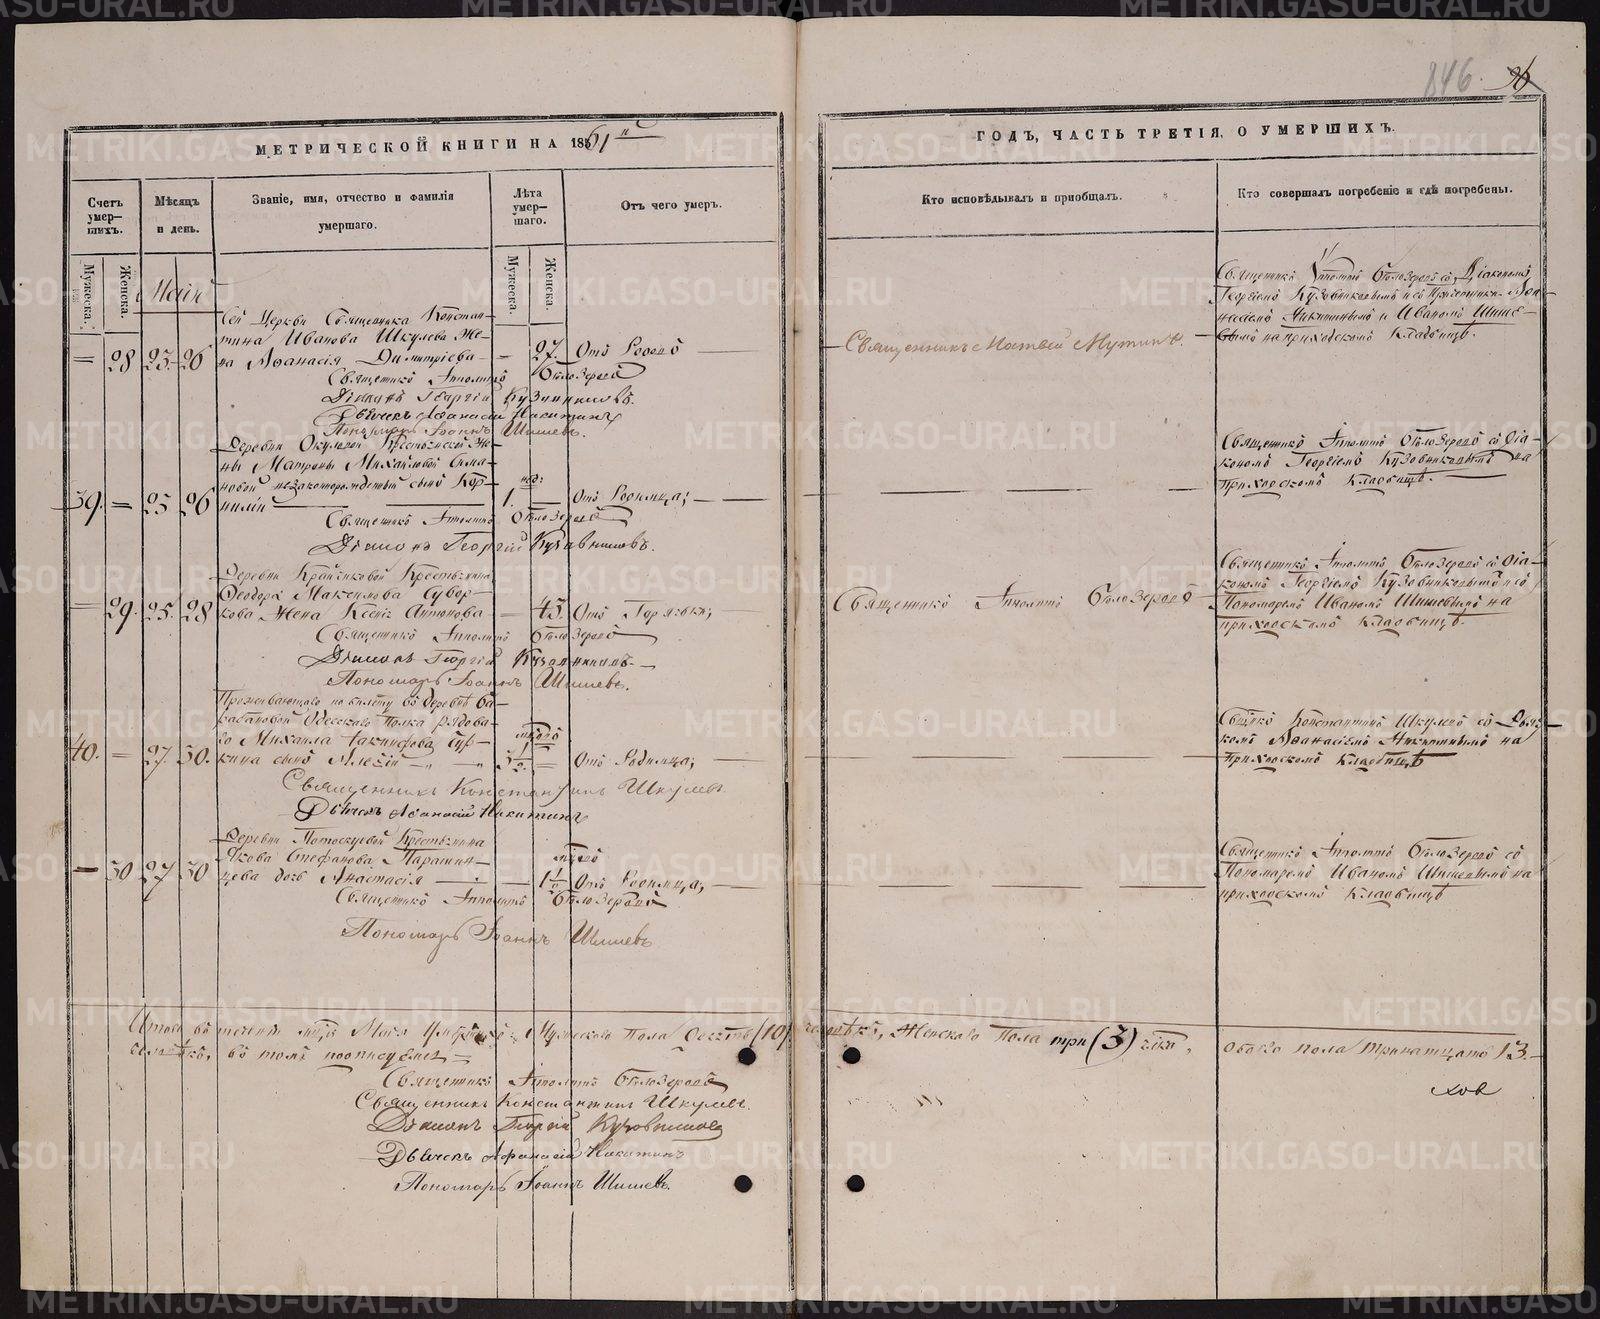 846
МЕТРИЧЕСКОЙ КНИГИ НА 1861й
ГОДЪ, ЧАСТЬ ТРЕТІЯ, О УМЕРШИХЪ.
Счетъ умер—шихъ.
Мѣсяцъ и день.
Званіе, имя, отчество и фамилія умершаго.
Лѣта умер—шаго.
Отъ чего умеръ.
Кто исповѣдывалъ и пріобщалъ.
Кто совершалъ погребеніе и гдѣ погребены.
Мужеска.
Женска.
Мужеска.
Женска.
Май
Сей Церкви Священника Констан—
тина Иванова Шкулева Же—
= 28 23. 26 на Аѳанасія Димитріева — — 27. Отъ Родовъ —
Священникъ Ипполитъ Бѣлозеровъ
Діаконъ Георгій Кузовниковъ.
Дьячекъ Аѳанасій Никитинъ
Пономарь Іоаннъ Шишевъ.
Священникъ Матѳей Мутинъ.
Священникъ Ипполитъ Бѣлозеровъ съ Діакономъ
Георгіемъ Кузовниковымъ и съ Причетники Аѳа—
насіемъ Никитинымъ и Иваномъ Шише—
вымъ на приходскомъ кладбищѣ.
Деревни Окуловой Крестьянской Же—
ны Матроны Михайловой Сима—
новой незаконнорожденный сынъ Кор— нед:
39. = 25 26 нилій — 1. — Отъ Родимца; —
Священникъ Ипполитъ Бѣлозеровъ
Діаконъ Георгій Кузовниковъ.
Священникъ Ипполитъ Бѣлозеровъ съ Діа—
кономъ Георгіемъ Кузовниковымъ на
Приходскомъ Кладбищѣ.
Деревни Крайчиковой Крестьянина
Ѳеодора Максимова Сувор—
= 29. 25. 28 кова Жена Ксенія Антонова — — 45. Отъ Горячки;
Священникъ Ипполитъ Бѣлозеровъ
Діаконъ Георгій Кузовниковъ. —
Пономарь Іоаннъ Шишевъ.
Священникъ Ипполитъ Бѣлозеровъ
Священникъ Ипполитъ Бѣлозеровъ съ Діа—
кономъ Георгіемъ Кузовниковымъ и съ
Пономаремъ Иваномъ Шишевымъ на
приходскомъ кладбищѣ.
Проживающаго по билету въ деревнѣ Ба—
рабановой Одесскаго Полка рядова—
го Михаила Іакинфова Сур—
40. = 27. 30. кина сынъ Алексій — 3½ = Отъ Родимца; —
Священникъ Константинъ Шкулевъ.
Дьячекъ Аѳанасій Никитинъ
Свщнкъ Константинъ Шкулевъ съ Дьяч—
комъ Аѳанасіемъ Никитинымъ на
Приходскомъ Кладбищѣ
Деревни Потоскуевой Крестьянина
Якова Стефанова Парамин—
— 30 27 30 цева дочь Анастасія — — 1½ Отъ Родимца; —
Священникъ Ипполитъ Бѣлозеровъ
Пономарь Іоаннъ Шишевъ
Священникъ Ипполитъ Бѣлозеровъ съ
Пономаремъ Иваномъ Шишевымъ на
приходскомъ Кладбищѣ
Итого въ теченіи мѣсяца Мая умершихъ: Мужескаго Пола десять (10) человѣкъ, Женскаго Пола три (3) челк., обоего пола тринатцать 13.
въ томъ подписуемся —
Священникъ Ипполитъ Бѣлозеровъ
Священникъ Константинъ Шкулевъ.
Діаконъ Георгій Кузовниковъ
Дьячекъ Аѳанасій Никитинъ
Пономарь Іоаннъ Шишевъ.
METRIKI.GASO-URAL.RU